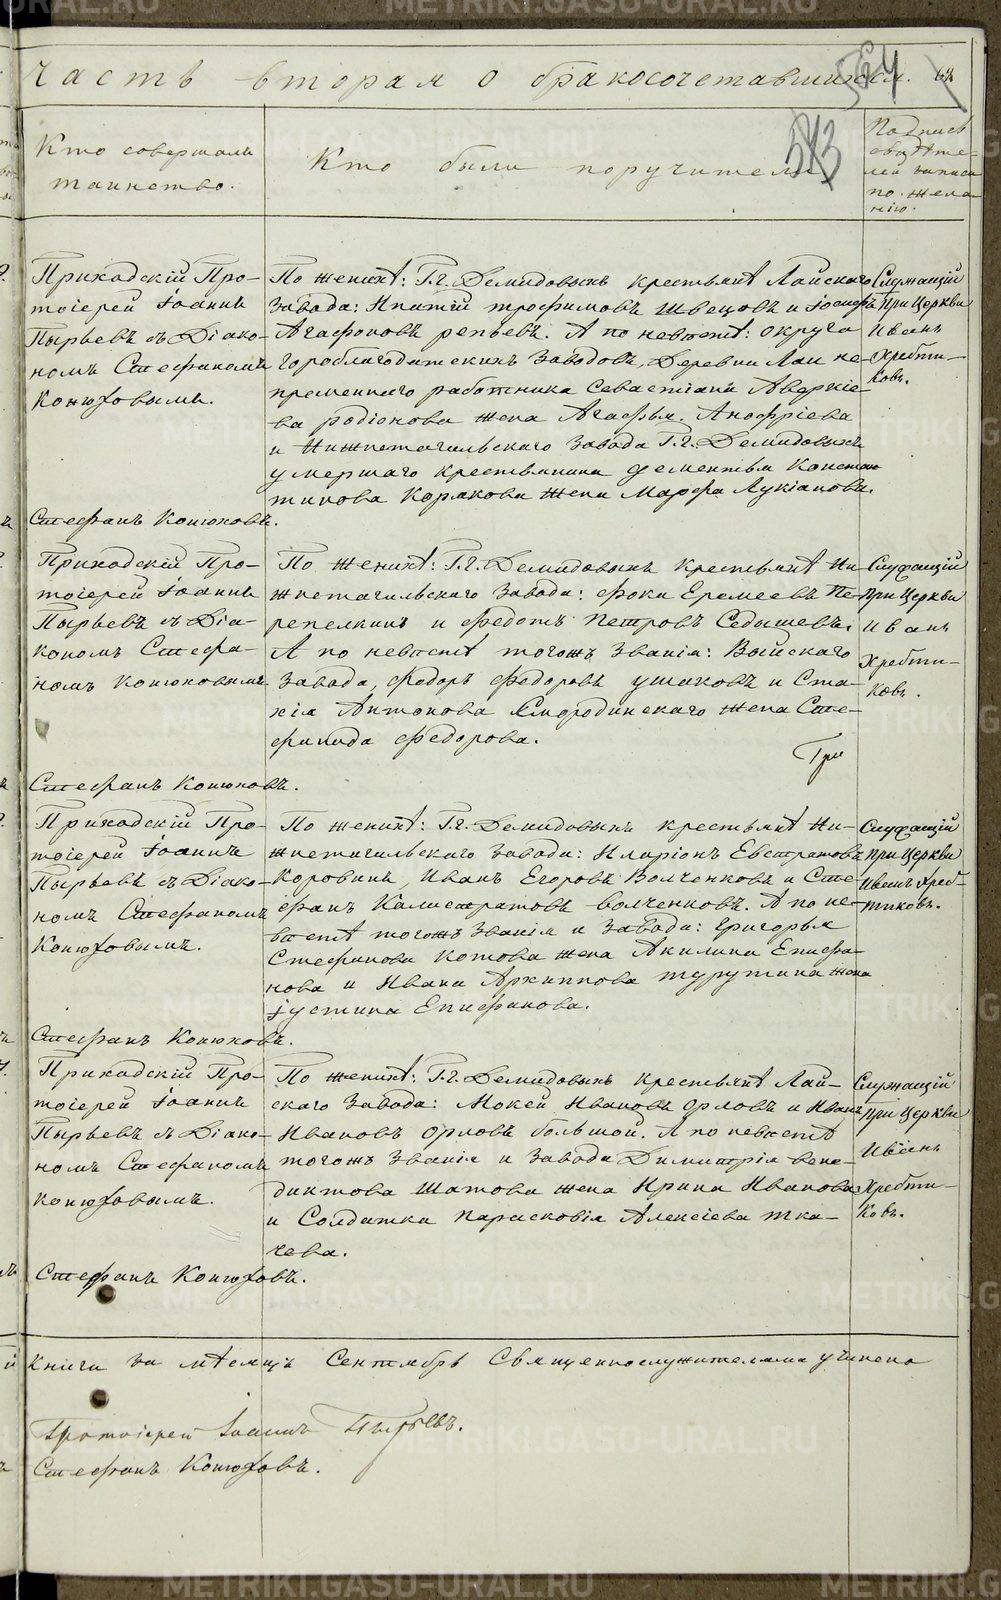 часть вторая о бракосочетавшихся.
Кто совершалъ
таинство.
Кто были поручители
Подпись
свидѣте-
лей записи
по жела-
нію.
Приходскій Про-
тоіерей Іоаннъ
Пырьевъ съ Діако-
номъ Стефаномъ
Конюховымъ.
По женихѣ: Г.г. Демидовыхъ крестьянѣ Лайскаго
завода: Ипатій трофимовъ Швецовъ и Іосифъ
Агафоновъ репьевъ. А по невѣстѣ: округа
гороблагодатскихъ заводовъ, Деревни Лаи не-
пременнаго работника Севастіана Аверкіе-
ва родіонова жена Агафья Анофріева
и Нижнетагильскаго завода Г.г. Демидовыхъ
умершаго крестьянина дементья Констан
тинова Корякова жена Марфа Лукіанова.
Служащій
При Церкви
Иванъ
Хребти-
ковъ.
Стефанъ Конюховъ.
Приходскій Про-
тоіерей Іоаннъ
Пырьевъ съ Діа-
кономъ Стефа-
номъ Конюховымъ
По женихѣ: Г.г. Демидовыхъ крестьянѣ Ни
жнетагильскаго завода: фока Еремеевъ Пе-
репелкинъ и федотъ Петровъ Седышевъ.
А по невѣстѣ тогожъ званія: Выйскаго
завода, Федоръ Федоровъ ушаковъ и Ста-
хія Антонова Смородинскаго жена Сте-
фанида федорова.
Три
Служащій
При Церкви
Иванъ
Хребти-
ковъ.
Стефанъ Конюховъ.
Приходскій Про-
тоіерей Іоаннъ
Пырьевъ съ Діако-
номъ Стефаномъ
Конюховымъ.
По женихѣ: Г.г. Демидовыхъ крестьянѣ Ни-
жнетагильскаго завода: Иларіонъ Евстратовъ
Коровинъ, Иванъ Егоровъ Волченковъ и Сте-
фанъ Калистратовъ волченковъ. А по не-
вѣстѣ тогожъ званія и завода: Григорья
Стефанова котова жена Акилина Епифа-
нова и Ивана Архиппова турутина жена
Іустина Епифанова.
Служащій
При Церкви
Иванъ Хреб-
тиковъ.
Стефанъ Конюховъ.
Приходскій Про-
тоіерей Іоаннъ
Пырьевъ съ Діако-
номъ Стефаномъ
конюховымъ.
По женихѣ: Г.г. Демидовыхъ крестьянѣ Лай-
скаго завода: Мокей Ивановъ Орловъ и Иванъ
Ивановъ Орловъ большой. А по невѣстѣ
тогожъ званія и завода Димитрія вене-
диктова Шатова жена Ирина Иванова
и Солдатка Парасковія Алексіева тка-
чева.
Служащій
При Церкви
Иванъ
Хребти-
ковъ.
Стефанъ Конюховъ.
книги за мѣсяцъ Сентябрь Священнослужителями учинена
Протоіерей Іоаннъ Пырьевъ.
Стефанъ Конюховъ.
METRIKI.GASO-URAL.RU